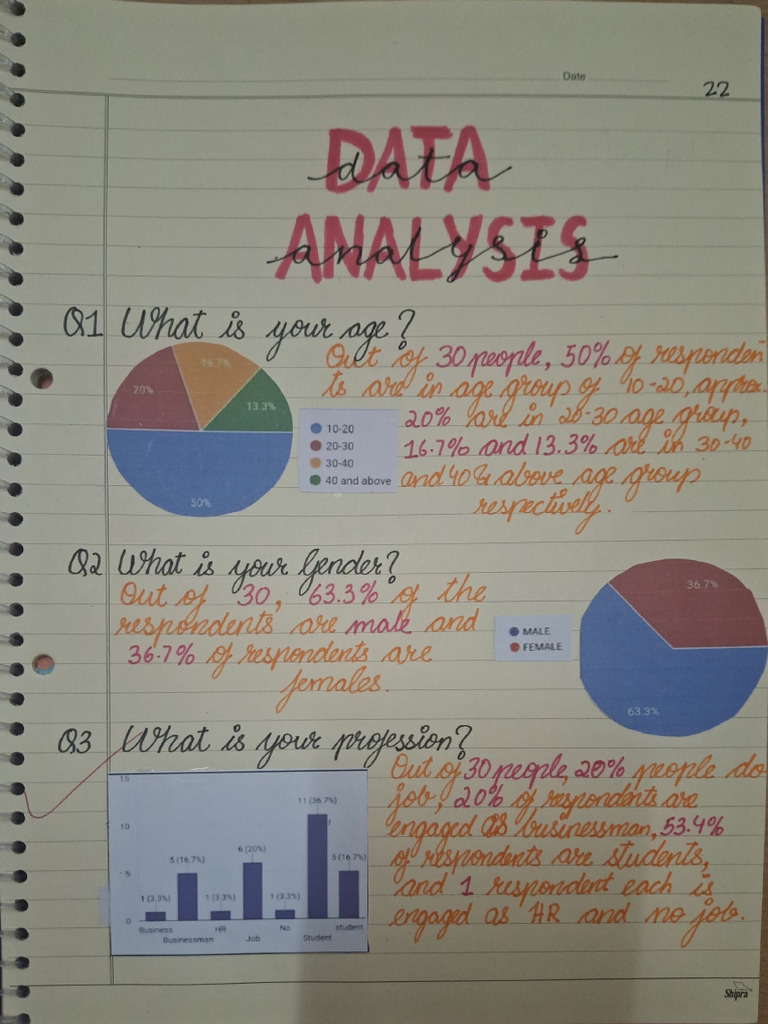 Date
22
DATA
data
ANALYSIS
analysis
Q1 What is your age?
16.7%
20%
13.3%
50%
10-20
20-30
30-40
40 and above
Out of 30 people, 50% of responden
ts are in age group of 10-20, approx.
20% are in 20-30 age group,
16.7% and 13.3% are in 30-40
and 40 & above age group
respectively.
Q2 What is your Gender?
Out of 30, 63.3% of the
respondents are male and
36.7% of respondents are
females.
MALE
FEMALE
36.7%
63.3%
Q3 What is your profession?
15
10
5
0
1 (3.3%)
5 (16.7%)
1 (3.3%)
6 (20%)
1 (3.3%)
11 (36.7%)
5 (16.7%)
Business
Businessman
HR
Job
No
Student
student
Out of 30 people, 20% people do
job, 20% of respondents are
engaged as businessman, 53.4%
of respondents are students,
and 1 respondent each is
engaged as HR and no job.
Shipra